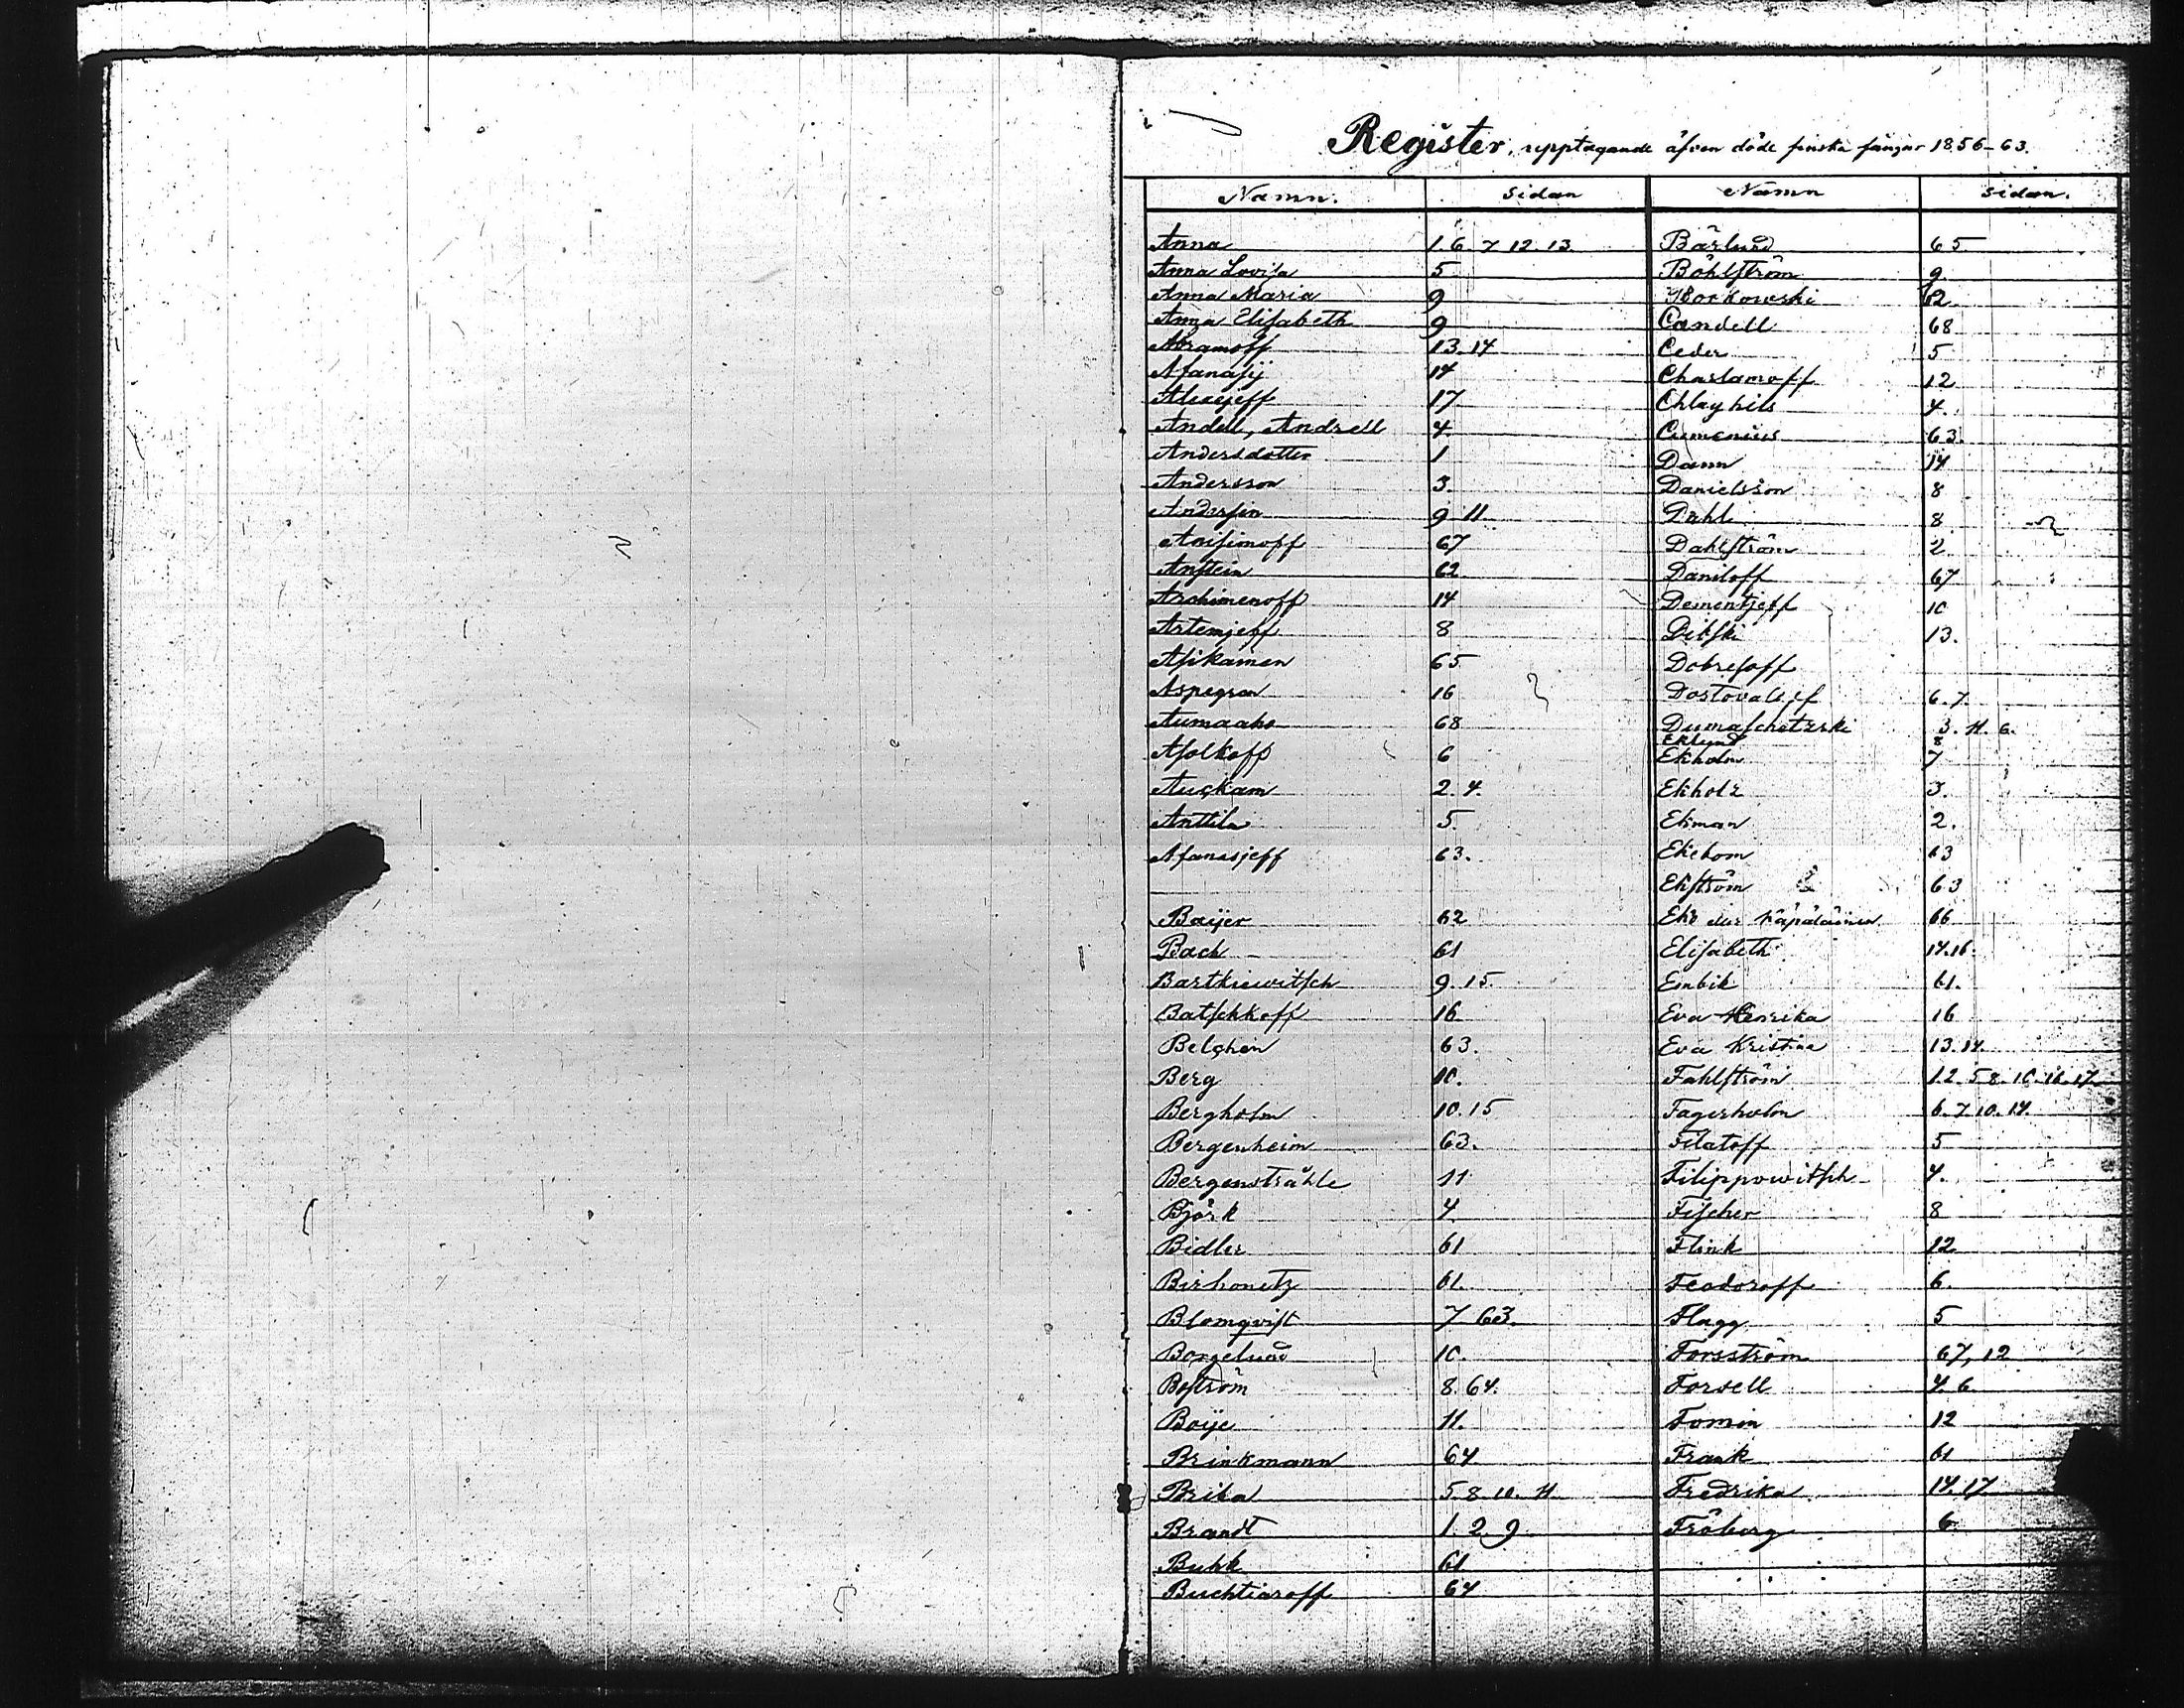 Register, upptagande äfven döde finska fångar 1856-63.
Namn. Sidan
Anna 1. 6. 7 12. 13.
Anna Lovisa 5
Anna Maria 9
Anna Elisabeth 9
Abramoff 13. 14
Afanasij 14
Alexejeff 17
Andell, Andrell 4.
Andersdotter 1
Andersson 3.
Andersin 9 11
Anisimoff 67
Anstein 62
Archimenoff 14
Artemjeff 8
Asikainen 65
Aspegren 16
Aumaaho 68
Asolkoff 6
Auckam 2. 4.
Anttila 5.
Afanasjeff 63.
Baijer 62
Bach 61
Bartkiewitsch 9. 15
Batschkoff 16
Belghen 63.
Berg 10.
Bergholm 10. 15
Bergenheim 63.
Bergenstråhle 11
Björk 4
Bidler 61
Birhonetz 61.
Blomqvist 7 63.
Borgelund 10.
Boström 8. 64.
Boije 11.
Brinkmann 64
Brita 5. 8. 10. 11
Brandt 1. 2. 9
Buhk 61
Buchtiaroff 64
Namn sidan.
Bärlund 65
Böhlström 9
Borkowski 62
Candell 68
Ceder 5
Charlamoff 12
Chlayhils 4
Cumenius 63.
Dann 14
Danielsson 8
Dahl 8
Dahlström 2
Daniloff 67
Dementjeff 10
Ditski 13.
Dobresoff
Dostovaloff 6. 7.
Dumaschetzski 3. 11. 6.
Eklund 8
Ekholm 7
Ekholz 3.
Ekman 2.
Ekebom 63
Ekström 63
Ek eller Käpäläinen 66
Elisabeth 14. 16.
Einbik 61.
Eva Henrika 16
Eva Kristina 13. 14
Fahlström 1. 2. 5 8. 10. 16. 17
Fagerholm 6. 7 10. 14.
Filatoff 5
Filippowitsch 4.
Fischer 8
Flink 12
Feodoroff 6.
Flagg 5
Forsström 67, 12
Forsell 4. 6
Fomin 12
Frank 61
Fredrika 14. 17
Fröberg 6